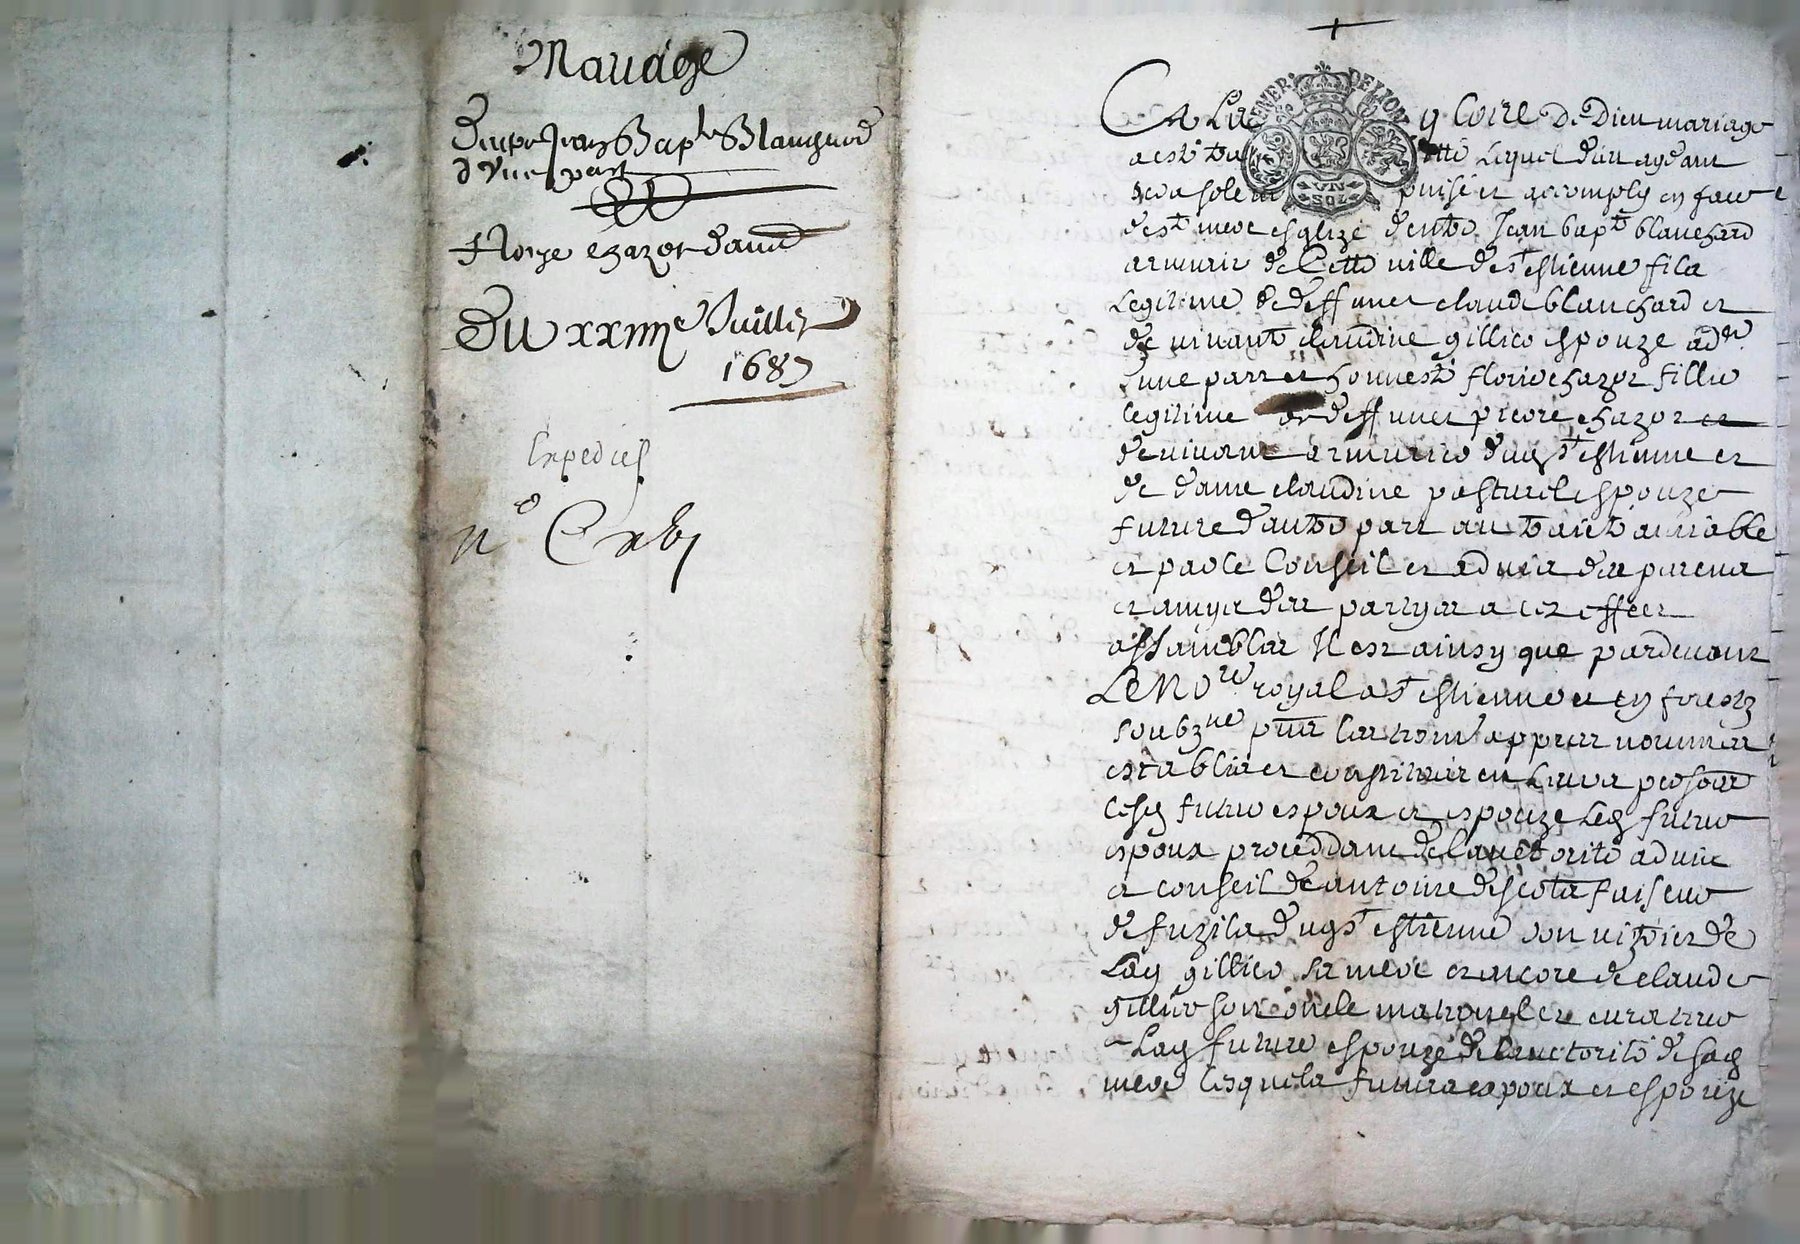 Mariage
Jean Bap.te Blanchard
d'Une part
Florye chazot d'autre
Du xxiiii.e Juillet
1687
Expediés
n.o
A La gloire De Dieu mariage
a esté lequel dieu aydant
sera solem et accomply en face
de s.te mere esglize Entre Jean bap.te blanchard
armurier de Cette ville de s.t estienne filz
Legitime de deffunct claude blanchard et
de vivante claudine gillier espouze
d'une part et honneste florie chazot fillie
legitime de deffunct pierre chazot et
de vivant armurier dud s.t estienne et
de dame claudine pasturel espouze
future d'autre part au traité amiable
et par le Conseil et advis des parens
et amys des partyes a cet effect
assamblés Il est ainsy que pardevant
Le No.re royal a s.t estienne en forestz
soubz.ne presents les tesmoins apres nommes
establis et constitués en Leurs persones
lesd futurs espoux et espouze Led futur
espoux proceddant de l'auctorité advis
et conseil de antoine descotz faiseur
de fuzilz dud s.t estienne
Lad gillier sa mere et encore de claude
gillier son oncle maternel et curateur
Lad future espouze de l'auctorité de sad
mere lesquels futurs espoux et espouze